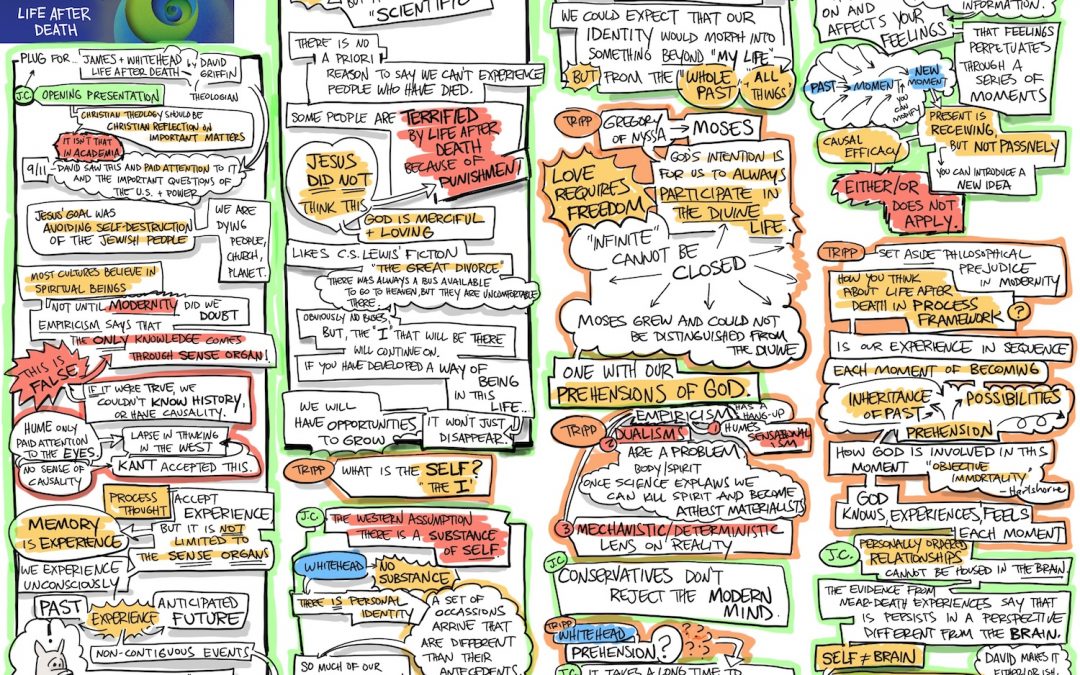 LIFE AFTER
DEATH
PLUG FOR... JAMES + WHITEHEAD by DAVID
LIFE AFTER DEATH GRIFFIN
THEOLOGIAN
J.C. OPENING PRESENTATION
CHRISTIAN THEOLOGY SHOULD BE
CHRISTIAN REFLECTION ON
IMPORTANT MATTERS
IT ISN'T THAT
IN ACADEMIA
9/11 -DAVID SAW THIS AND PAID ATTENTION TO IT
AND THE IMPORTANT QUESTIONS OF
THE U.S. + POWER.
JESUS' GOAL WAS
AVOIDING SELF-DESTRUCTION
OF THE JEWISH PEOPLE
WE ARE
DYING
PEOPLE,
CHURCH,
PLANET.
MOST CULTURES BELIEVE IN
SPIRITUAL BEINGS
NOT UNTIL MODERNITY DID WE
DOUBT
EMPIRICISM SAYS THAT
THE ONLY KNOWLEDGE COMES
THROUGH SENSE ORGAN!
THIS IS
FALSE
IF IT WERE TRUE, WE
COULDN'T KNOW HISTORY,
OR HAVE CAUSALITY.
HUME ONLY
PAID ATTENTION
TO THE EYES.
NO SENSE OF
CAUSALITY
LAPSE IN THINKING
IN THE WEST
KANT ACCEPTED THIS.
PROCESS
THOUGHT
ACCEPT
EXPERIENCE
BUT IT IS NOT
LIMITED TO
THE SENSE ORGANS
MEMORY
IS EXPERIENCE
WE EXPERIENCE
UNCONSCIOUSLY
PAST
EXPERIENCE
ANTICIPATED
FUTURE
NON-CONTIGUOUS EVENTS
"SCIENTIFIC"
THERE IS NO
A PRIORI
REASON TO SAY WE CAN'T EXPERIENCE
PEOPLE WHO HAVE DIED.
SOME PEOPLE ARE TERRIFIED
BY LIFE AFTER
DEATH
BECAUSE OF
PUNISHMENT
JESUS
DID NOT
THINK THIS
GOD IS MERCIFUL
+ LOVING
LIKES C.S. LEWIS' FICTION
"THE GREAT DIVORCE"
THERE WAS ALWAYS A BUS AVAILABLE
TO GO TO HEAVEN, BUT THEY ARE UNCOMFORTABLE
THERE.
OBVIOUSLY NO BUSES,
BUT, THE "I" THAT WILL BE THERE
WILL CONTINUE ON.
IF YOU HAVE DEVELOPED A WAY OF
BEING
IN THIS
LIFE...
IT WON'T JUST
DISAPPEAR.
WE WILL
HAVE OPPORTUNITIES
TO GROW
TRIPP WHAT IS THE SELF?
"THE I"
J.C. THE WESTERN ASSUMPTION
THERE IS A SUBSTANCE
OF SELF.
WHITEHEAD NO
SUBSTANCE
THERE IS PERSONAL
IDENTITY
A SET OF
OCCASSIONS
ARRIVE THAT
ARE DIFFERENT
THAN THEIR
ANTECEDENTS.
SO MUCH OF OUR
WE COULD EXPECT THAT OUR
IDENTITY WOULD MORPH INTO
SOMETHING BEYOND "MY LIFE"
BUT FROM THE "WHOLE "ALL
PAST" THINGS"
TRIPP GREGORY
OF NYSSA MOSES
LOVE
REQUIRES
FREEDOM
GOD'S INTENTION IS
FOR US TO ALWAYS
PARTICIPATE IN
THE DIVINE
LIFE.
"INFINITE"
CANNOT BE
CLOSED
MOSES GREW AND COULD NOT
BE DISTINGUISHED FROM
THE DIVINE
ONE WITH OUR
PREHENSIONS OF GOD.
TRIPP EMPIRICISM HAS A
HANG-UP
1 HUME'S
SENSATIONAL
ISM
2 DUALISMS
ARE A PROBLEM
BODY/SPIRIT
ONCE SCIENCE EXPLAINS WE
CAN KILL SPIRIT AND BECOME
ATHEIST MATERIALISTS
3 MECHANISTIC/DETERMINISTIC
LENS ON REALITY
J.C.
CONSERVATIVES DON'T
REJECT THE MODERN
MIND.
TRIPP
WHITEHEAD
PREHENSION? ? ? ? ?
J.C. IT TAKES A LONG TIME TO
ON AND
AFFECTS YOUR
FEELINGS
INFORMATION.
THAT FEELINGS
PERPETUATES
THROUGH A
SERIES OF
MOMENTS
PAST MOMENT NEW
MOMENT
YOU
CAN
MODIFY
CAUSAL
EFFICACY
PRESENT IS
RECEIVING,
BUT NOT PASSIVELY
YOU CAN INTRODUCE A
NEW IDEA
EITHER/OR
DOES NOT
APPLY.
TRIPP SET ASIDE PHILOSOPHICAL
PREJUDICE
IN MODERNITY
HOW YOU THINK
ABOUT LIFE AFTER
DEATH IN PROCESS
FRAMEWORK?
IS OUR EXPERIENCE IN SEQUENCE
EACH MOMENT OF BECOMING
INHERITANCE
OF PAST POSSIBILITIES
PREHENSION
HOW GOD IS INVOLVED IN THIS
MOMENT "OBJECTIVE
IMMORTALITY"
-Hartshorne
GOD
KNOWS, EXPERIENCES, FEELS
EACH MOMENT
J.C. PERSONALLY ORDERED
RELATIONSHIPS
CANNOT BE HOUSED IN THE BRAIN.
THE EVIDENCE FROM
NEAR-DEATH EXPERIENCES SAY THAT
IS PERSISTS IN A PERSPECTIVE
DIFFERENT FROM THE BRAIN.
SELF ≠ BRAIN
DAVID MAKES IT
EITHER/OR ISH.